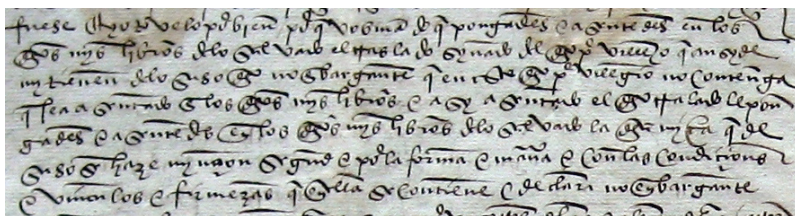 fuese E yo tovelo por bien por que vos mando que pongades e asentedes en los
dhos mys libros de lo salvado el traslado synado del dho previllejo que ansy de
my tienen de lo suso dho no enbargante que en este dho previlegio no contenga
que sea asentado en los dhos mys libros e asy asentado el dho traslado le pon
gades e asentedes en los dhos mys libros de lo salvado la dha mrd que de
suso se haze mynçion segund e por la forma e manera e con las condiçiones
e vinculos e firmezas que en ella se contiene e declara no enbargante